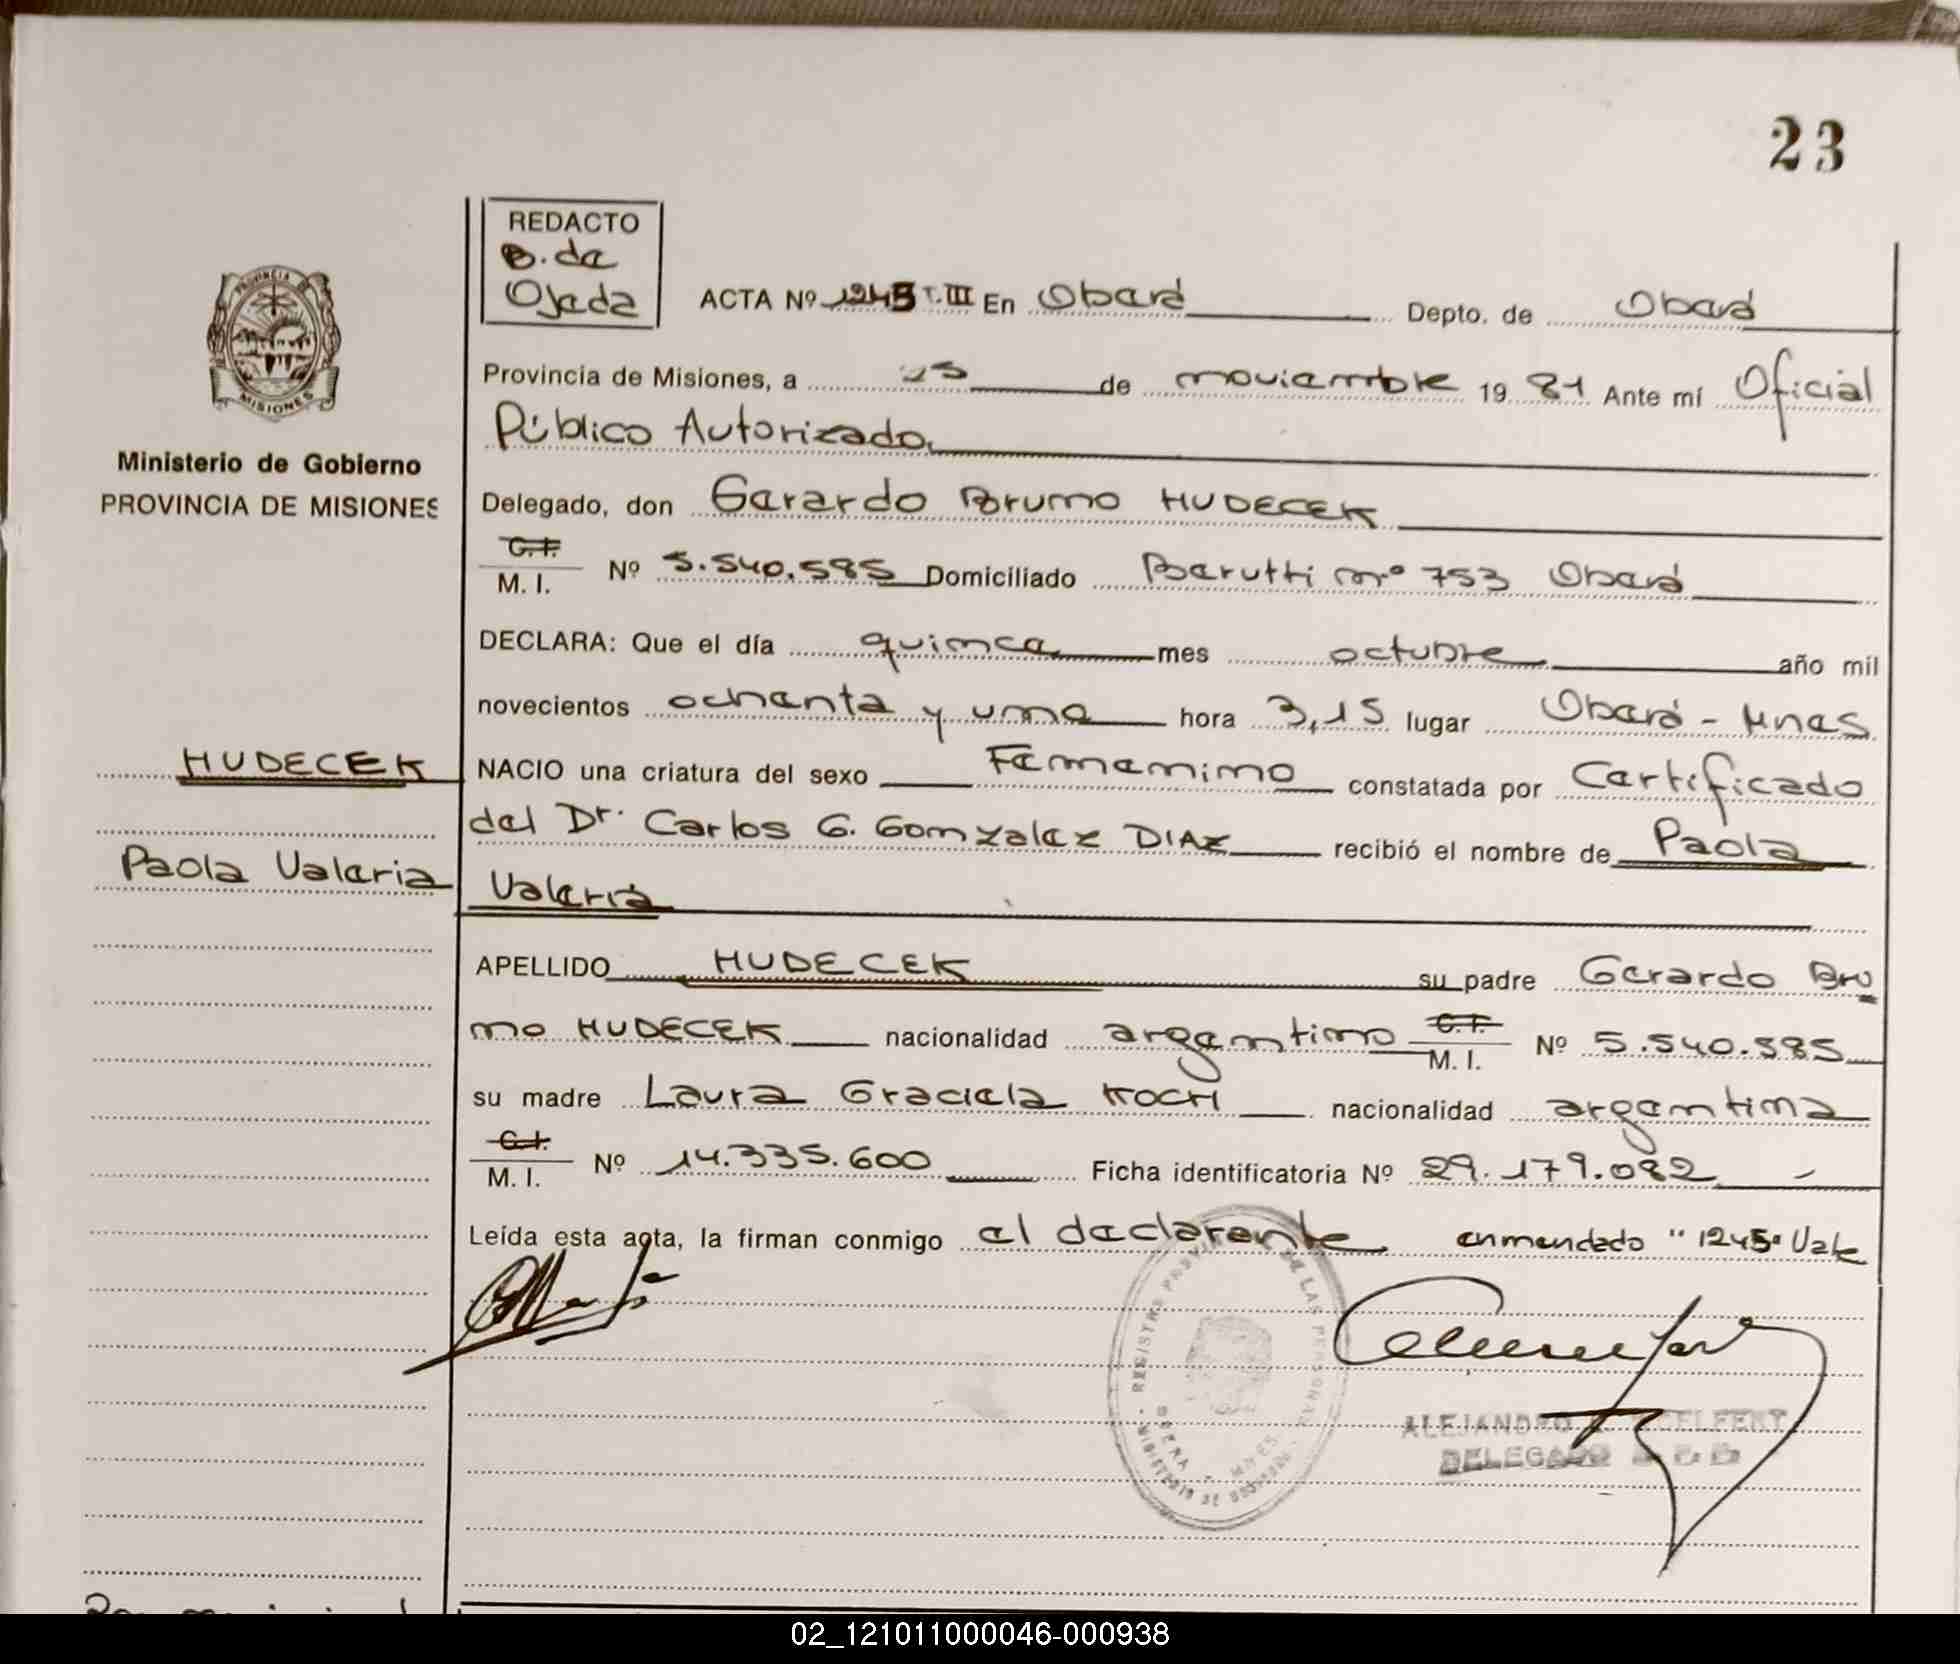 23
REDACTO
B. de
Ojeda
ACTA Nº 1245 T. III En Oberá Depto. de Oberá
PROVINCIA DE
MISIONES
Provincia de Misiones, a 23 de noviembre 1981 Ante mí Oficial
Público Autorizado
Ministerio de Gobierno
PROVINCIA DE MISIONES
Delegado, don Gerardo Bruno HUDECEK
C.I.
M. I. Nº 5.540.585 Domiciliado Barutti nº 753 Oberá
DECLARA: Que el día quince mes octubre año mil
novecientos ochenta y uno hora 3,15 lugar Oberá - Mnes
HUDECEK NACIO una criatura del sexo Femenino constatada por Certificado
del Dr. Carlos G. Gonzalez DIAZ recibió el nombre de Paola
Paola Valeria Valeria
APELLIDO HUDECEK su padre Gerardo Bru
no HUDECEK nacionalidad argentino C.I. M. I. Nº 5.540.585
su madre Laura Graciela KOCH nacionalidad argentina
C.I.
M. I. Nº 14.335.600 Ficha identificatoria Nº 29.179.082
Leída esta acta, la firman conmigo el declarante enmendado "1245" Vale
REGISTRO PROVINCIAL DE LAS PERSONAS
OBERA MNES.
MINISTERIO DE GOBIERNO
ALEJANDRO
DELEGADO
02_121011000046-000938